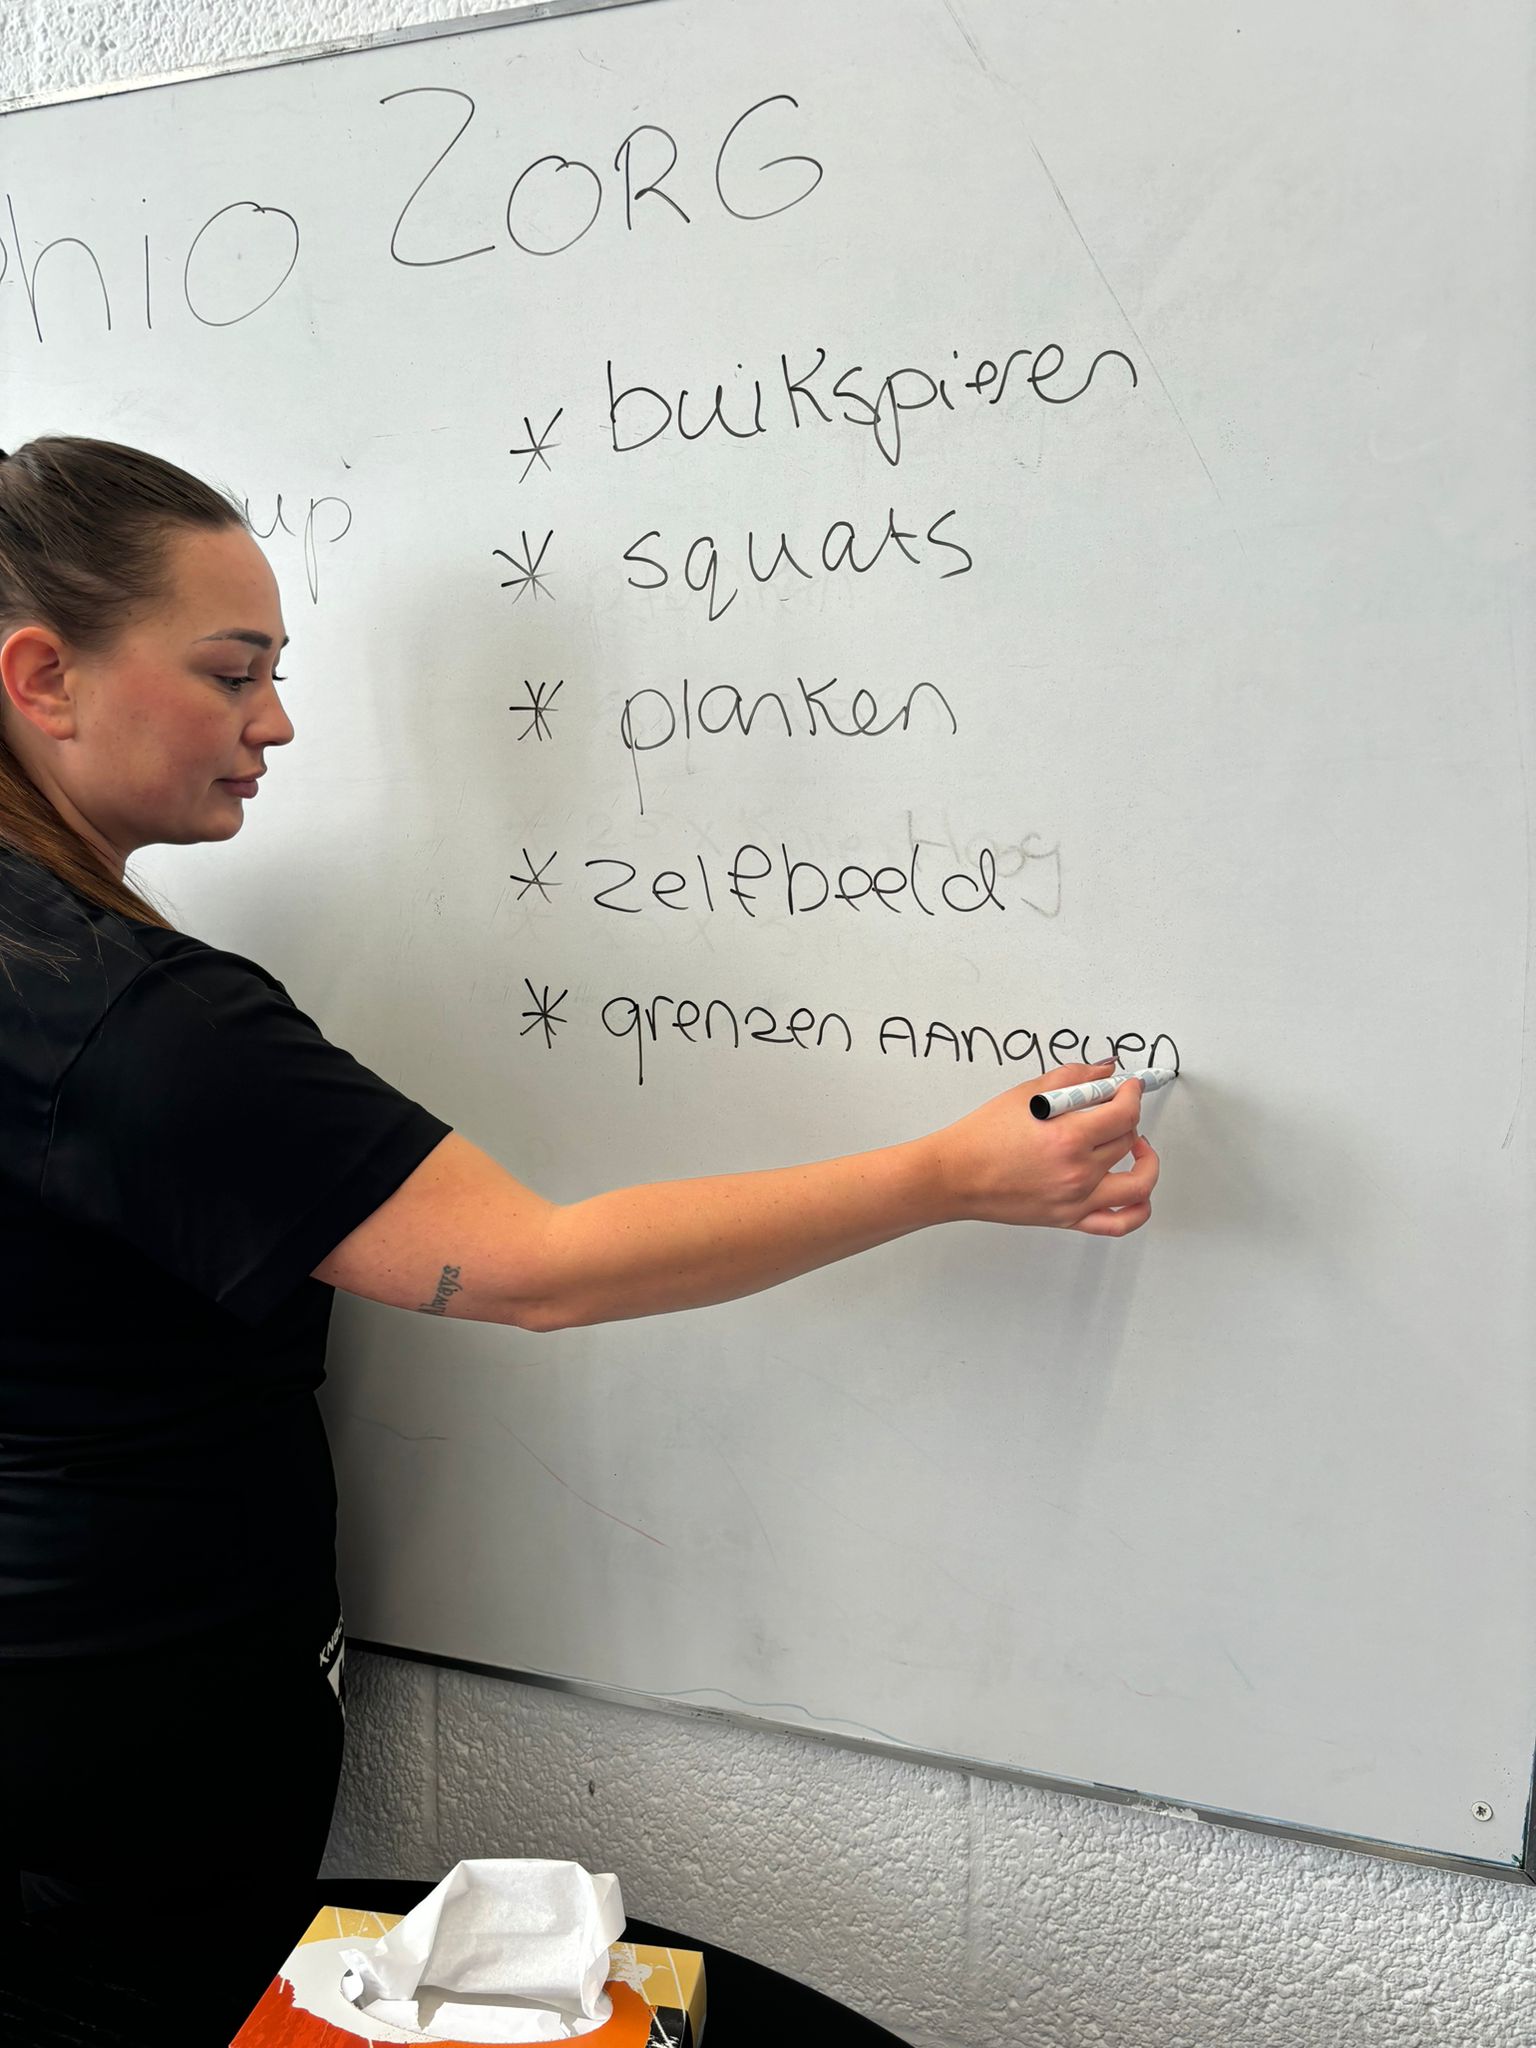 hio ZORG
* buikspieren
up
* squats
* planken
* zelfbeeld
* grenzen AANgeven
Always.
KNOC